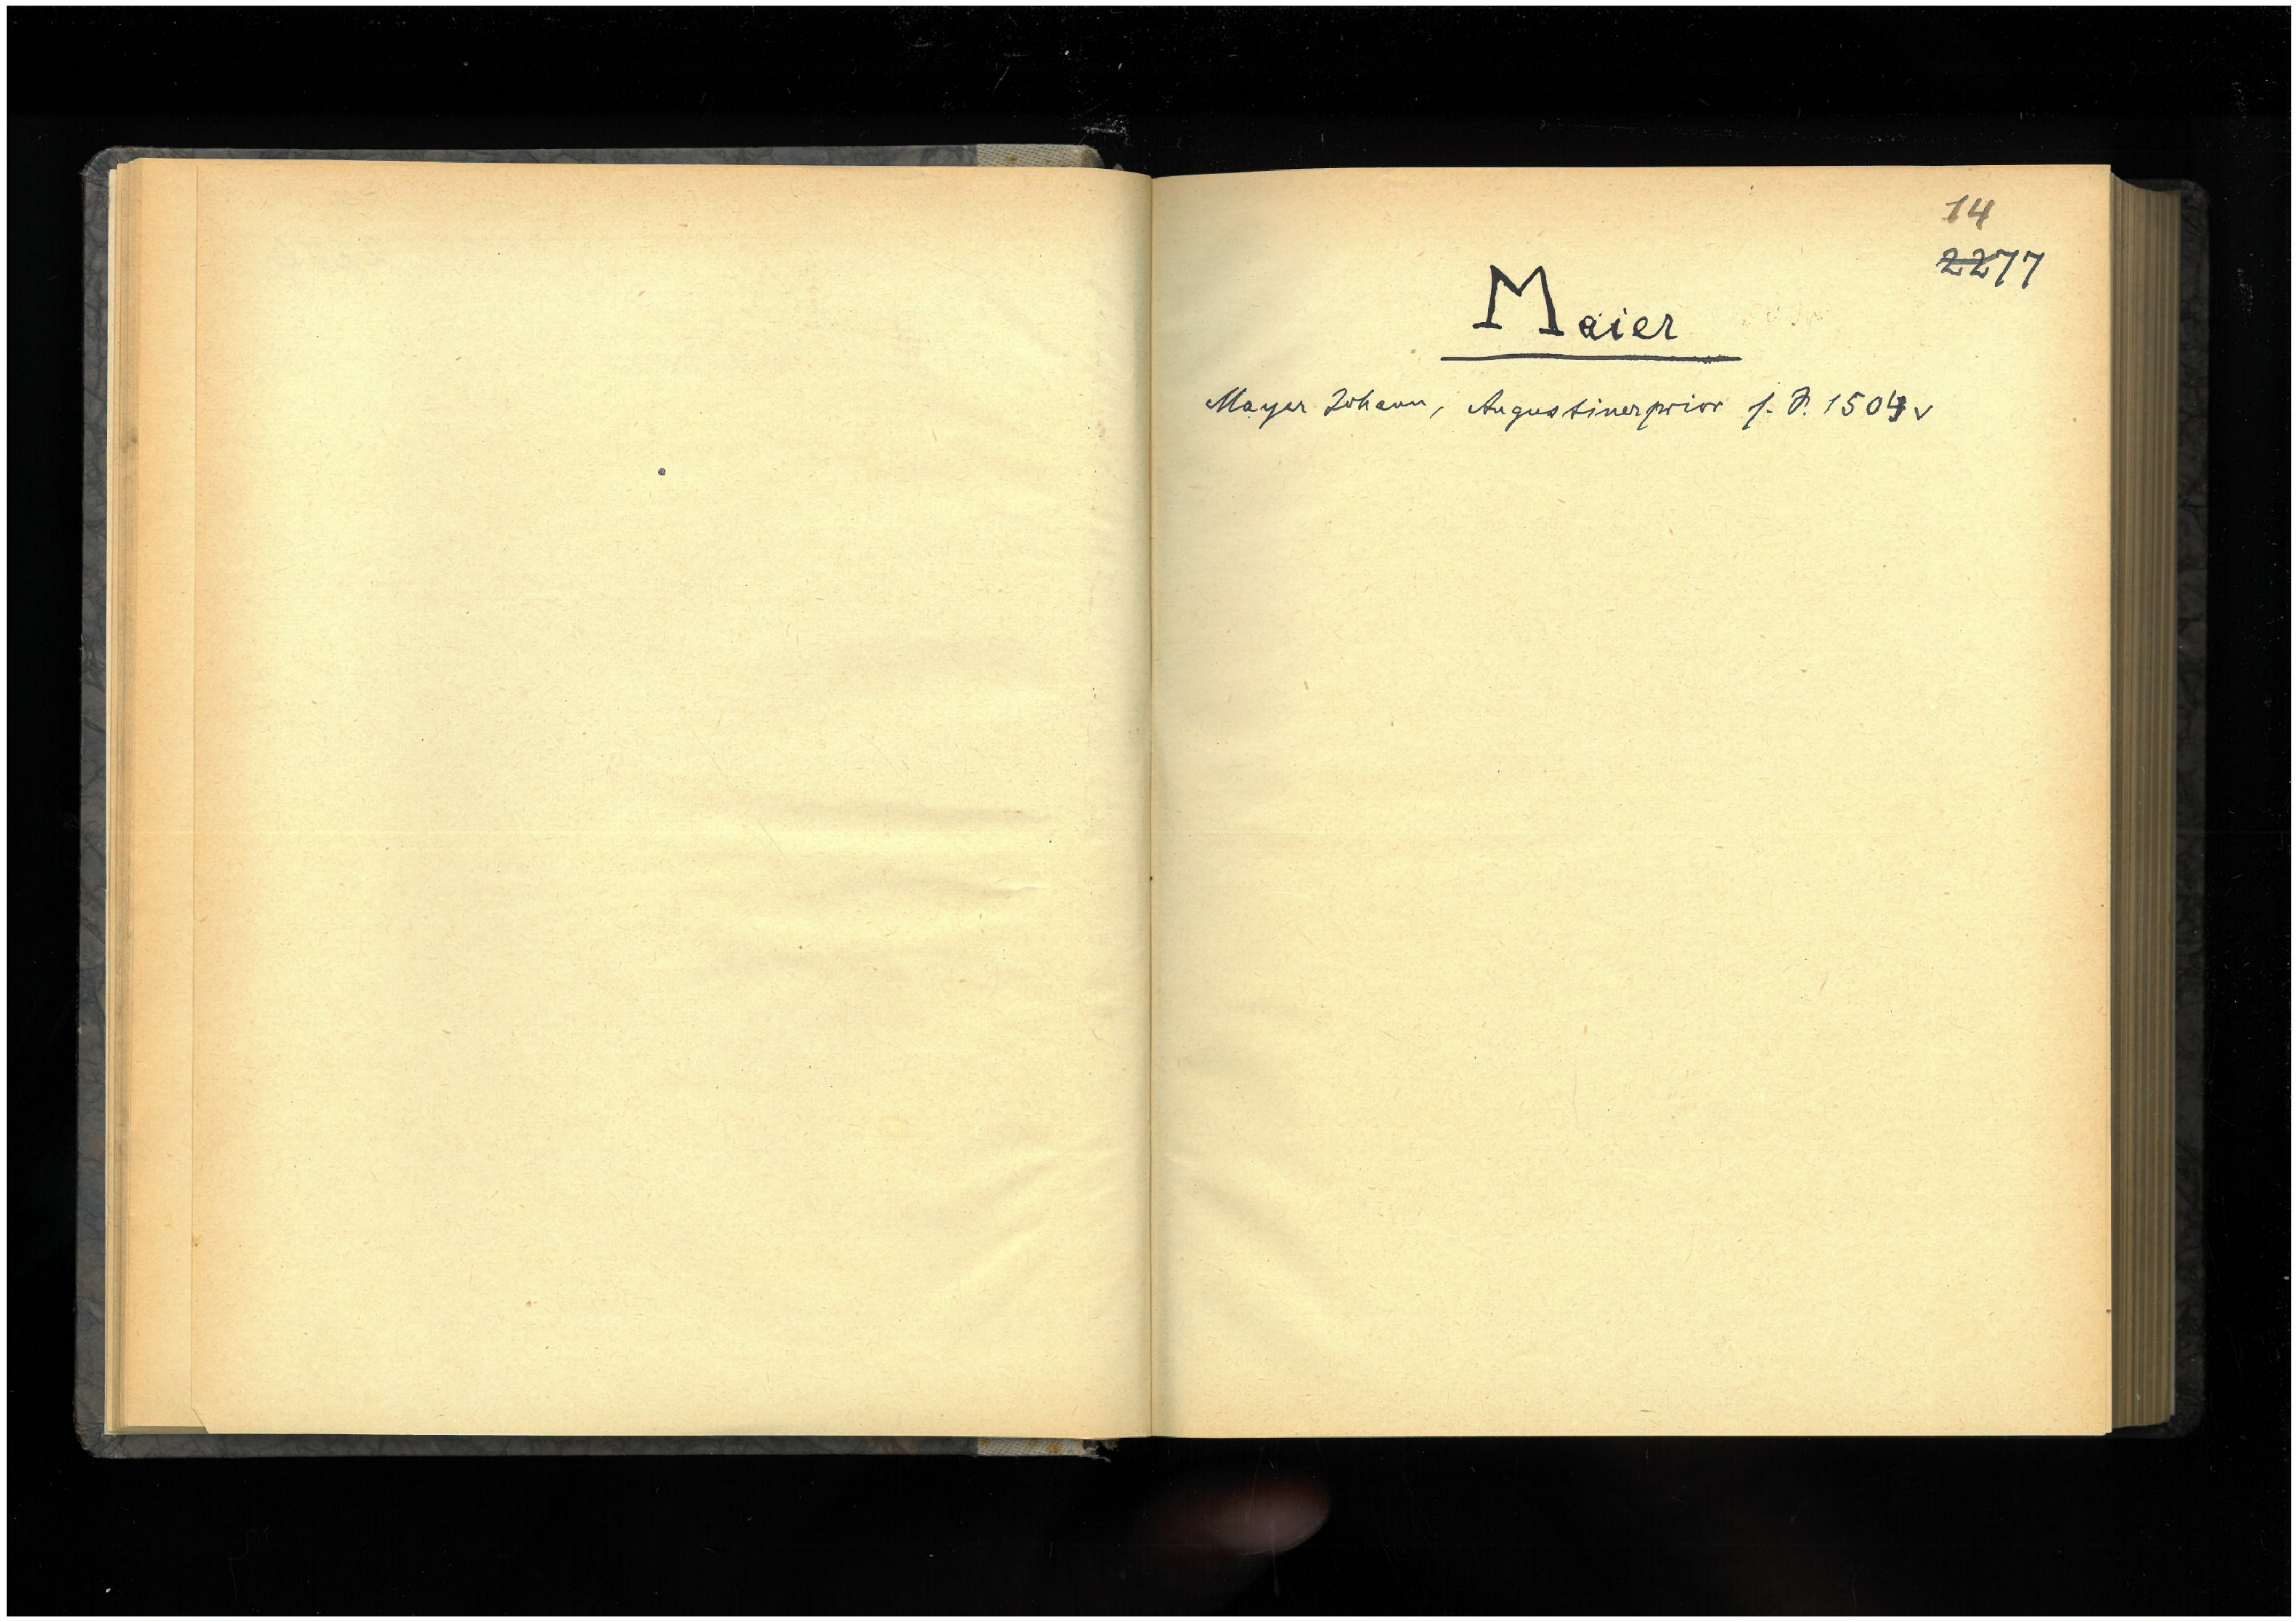 14
2277
Maier
Mayer Johann, Augustinerprior f. J. 1504